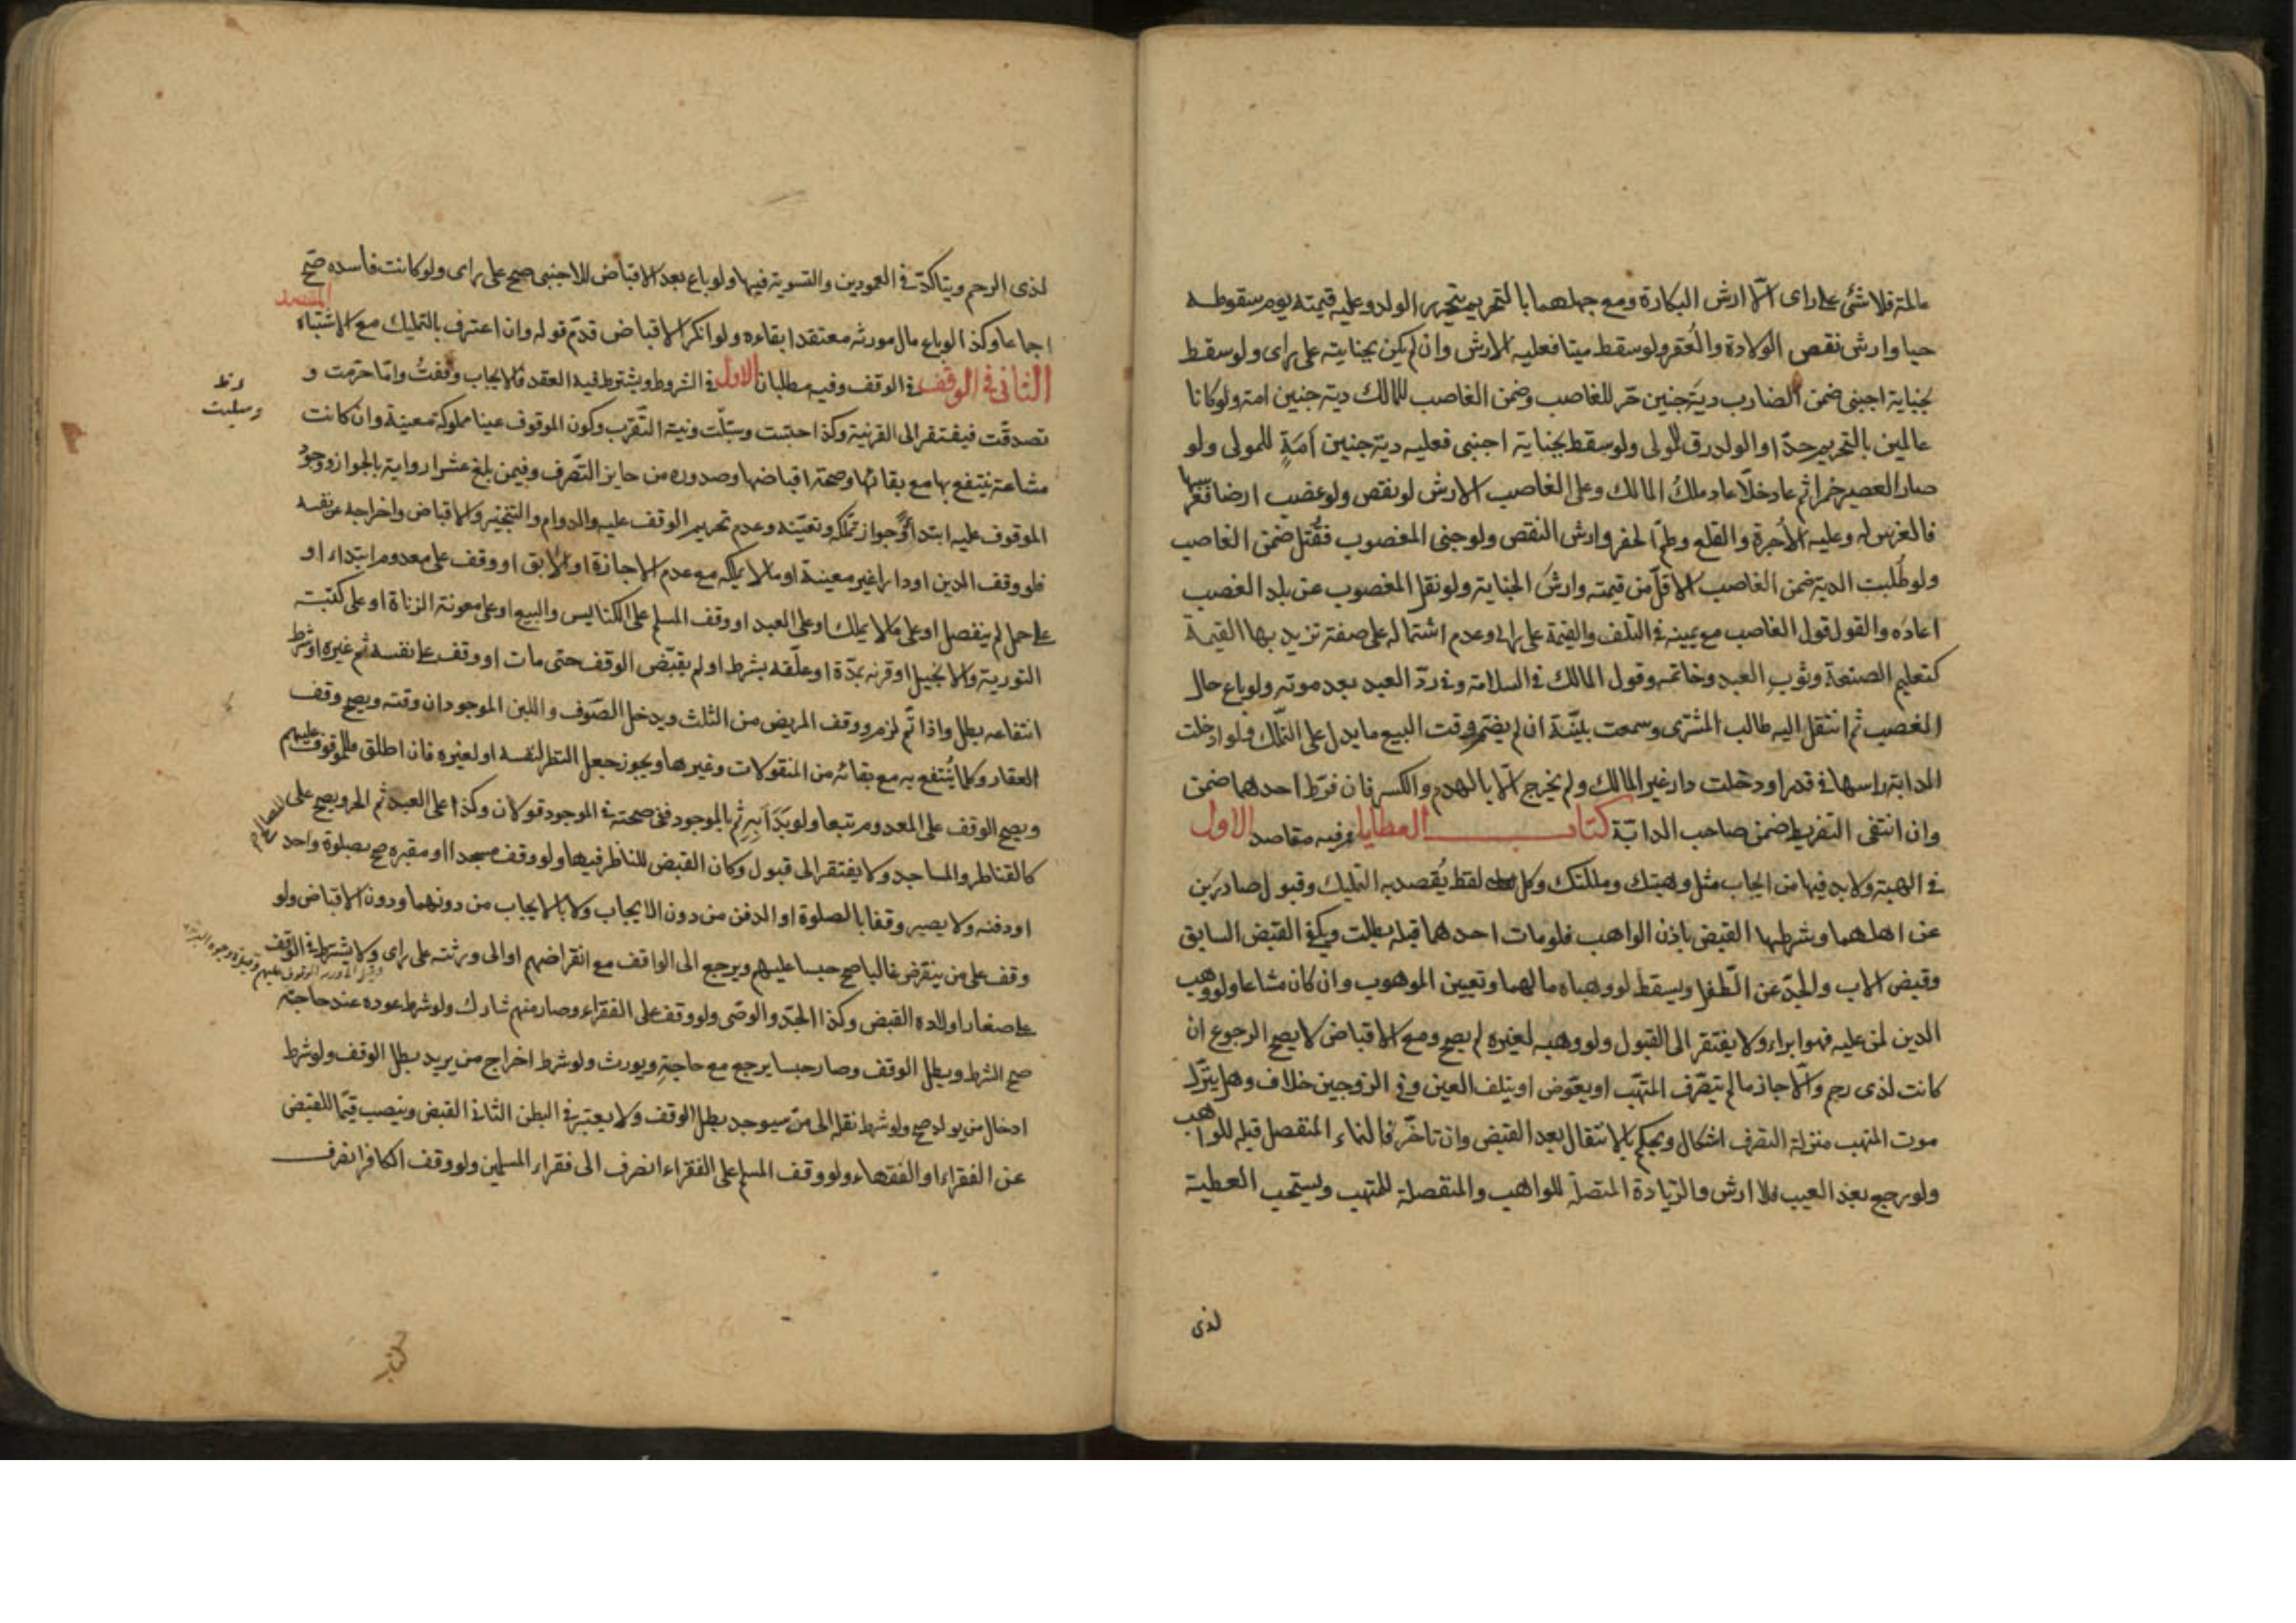 عالمة فلا شئ على راى الّا ارش البكارة ومع جهلهما بالتحريم يتحرر الولد وعليه قيمته يوم سقوطه
حيا وارش نقص الولادة والعُقر ولو سقط ميتا فعليه الارش وان لم يكن بجنايته على راى ولو سقط
بجناية اجنبى ضمن الضارب دية جنين حّر للغاصب وضمن الغاصب للمالك دية جنين امة ولو كانا
عالمين بالتحريم حدّا والولد رق للمولى ولو سقط بجناية اجنبى فعليه دية جنين اَمَةٍ للمولى ولو
صار العصير خمرا ثم عاد خلّا عاد ملكُ المالك وعلى الغاصب الارش لو نقص ولو غصب ارضا فغرسها
فالغرس له وعليه الاُجرة والقلع وطمّ الحفر وارش النقص ولو جنى المغصوب فقُتل ضمن الغاصب
ولو طُلبت الدية ضمن الغاصب الاقلّ من قيمته وارشَ الجناية ولو نقل المغصوب عن بلد الغصب
اعاده والقول قول الغاصب مع يمينه فى التلف والقيمة على راى وعدم اشتماله على صفة تزيد بها القيمة
كتعليم الصنعة وثوب العبد وخاتمه وقول المالك فى السلامة وفى ردّ العبد بعد موته ولو باع حال
الغصب ثم انتقل اليه طالب المشترى وسمعت بيّنة ان لم يضمّ وقت البيع ما يدل على التملّك فلو ادخلت
الدابة راسها فى قدر او دخلت دار غير المالك ولم يخرج الّا بالهدم والكسر فان فرّط احدهما ضمن
وان انتفى التفريط ضمن صاحب الدابّة كتاب العطايا وفيه مقاصد الاول
فى الهبة ولا بد فيها من ايجاب مثل وهبتك وملكتك وكل لفظ يُقصد به التمليك وقبول صادرَين
عن اهلهما وشرطها القبض باذن الواهب فلو مات احدهما قبله بطلت ويكفى القبض السابق
وقبض الاب والجدّ عن الطّفل ويسقط لو وهباه مالهما وتعيين الموهوب وان كان مشاعا ولو وهب
الدين لمن عليه فهو ابراء ولا يفتقر الى القبول ولو وهبه لغيره لم يصح ومع الاقباض لا يصح الرجوع ان
كانت لذى رحم والّا جاز مالم يتصرّف المتهّب او يعوّض او يتلف العين وفى الزوجين خلاف وهل ينزّل
موت المتهب منزلة التصرف اشكال ويحكم بالانتقال بعد القبض وان تاخّر فالنماء المنفصل قبله للواهب
ولو رجع بعد العيب فلا ارش والزّيادة المتصلة للواهب والمنفصلة للمتهب ويستحب العطية
لذى
لذى الرحم ويتاكدّ فى العمودين والتسوية فيها ولو باع بعد الاقباض للاجنبى صح على راى ولو كانت فاسده صّح
اجماعا وكذا لو باع مال مورثه معتقدا بقاءه ولو انكر الاقباض قدّم قوله وان اعترف بالتمليك مع الاشتباه المقصد
الثانى فى الوقف فى الوقف وفيه مطلبان الاول فى الشروط ويشترط فيه العقد فالايجاب وقفتُ وامّا حرّمت و
تصدقّت فيفتقر الى القرينة وكذا حبّست وسبّلت ونية التّقرب وكون الموقوف عينا مملوكة معينة وان كانت
مشاعة ينتفع بها مع بقائها وصحة اقباضها وصدوره من جايز التّصرف وفيمن بلغ عشرا رواية بالجواز ووجودُ
الموقوف عليه ابتداءً وجواز تملّكه وتعيّنه وعدم تحريم الوقف عليه والدوام والتنجيز والاقباض واخراجه عن نفسه
فلو وقف الدين او دارا غير معينة او مالا يملكه مع عدم الاجازة او الابق او وقف على معدوم ابتداء او
على حمل لم ينفصل او على مالا يملك او على العبد او وقف المسلم على الكنايس والبيع او على معونة الزناة او على كتبة
التورية والانجيل او قرنه بمدّة او علّقه بشرط او لم يقبّض الوقف حتى مات او وقف على نفسه ثم غيره او شرط
انتفاعه بطل واذا تمّ لزم ووقف المريض من الثلث ويدخل الصّوف واللبن الموجودان وقته ويصح وقف
العقار وكلما يُنتفع به مع بقائه من المنقولات وغيرها ويجوز جعل النظر لنفسه او لغيره فان اطلق فللموقوف عليهم
ويصح الوقف على المعدوم تبعا ولو بَدَاَ بِهِ ثم بالموجود ففى صحته فى الموجود قولان وكذا على العبد ثم الحر ويصح على المصالح
كالقناطر والمساجد ولا يفتقر الى قبول وكان القبض للناظر فيها ولو وقف مسجدا او مقبره صح بصلوة واحد
او دفنه ولا يصير وقفا بالصلوة او الدفن من دون الايجاب ولا بالايجاب من دونهما ودون الاقباض ولو
وقف على من ينقرض غالبا صح حبسا عليهم ويرجع الى الواقف مع انقراضهم او الى ورثته على راى ولا يشترط فى الوقف
على صغار اولاده القبض وكذا الجدّ والوصّى ولو وقف على الفقراء وصار منهم شارك ولو شرط عوده عند حاجته
صح الشرط وبطل الوقف وصار حبسا يرجع مع حاجتِهِ ويورث ولو شرط اخراج من يريد بطل الوقف ولو شرط
ادخال من يولد صح ولو شرط نقله الى من سيوجد بطل الوقف ولا يعتبر فى البطن الثانى القبض وينصب قيّما للقبض
عن الفقراء او الفقهاء ولو وقف المسلم على الفقراء انصرف الى فقراء المسلمين ولو وقف الكافر انصرف